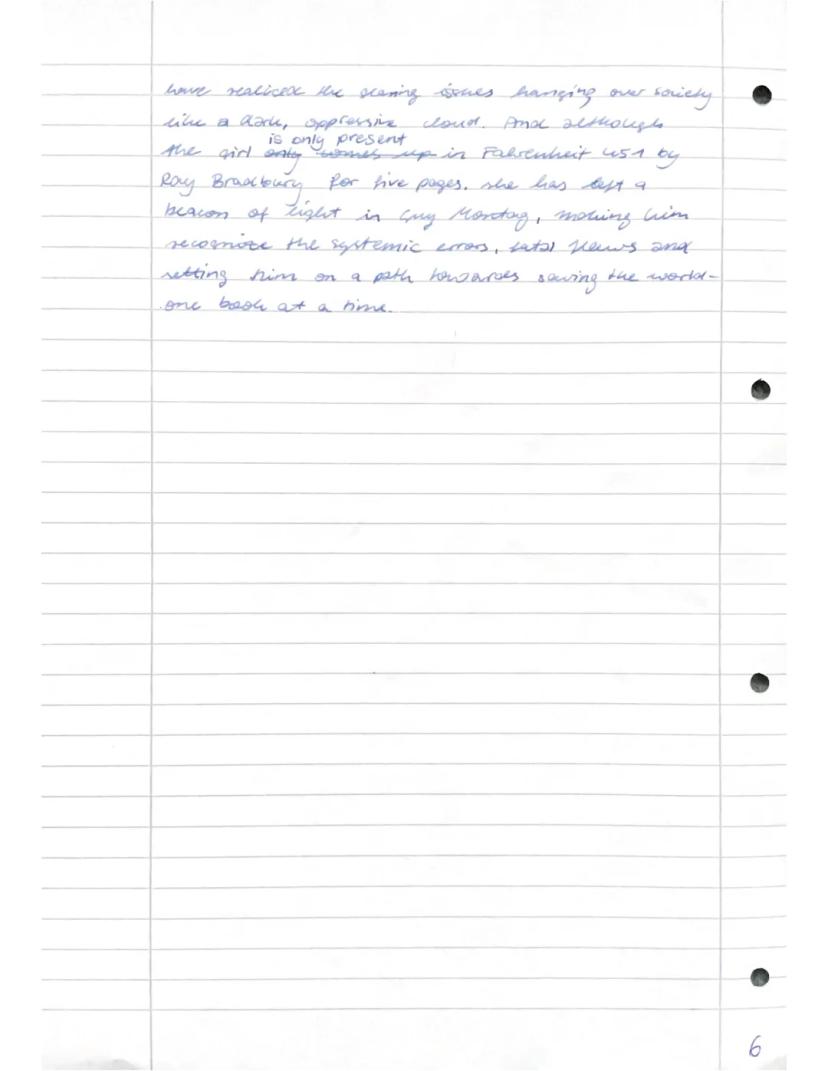 have realized the glaring issues hanging over society
like a dark, oppressive cloud. And although
is only present
the girl only comes up in Fahrenheit 451 by
Ray Bradbury for five pages, she has left a
beacon of light in Guy Montag, making him
recognize the systemic errors, fatal flaws and
setting him on a path towards saving the world-
one book at a time.
6